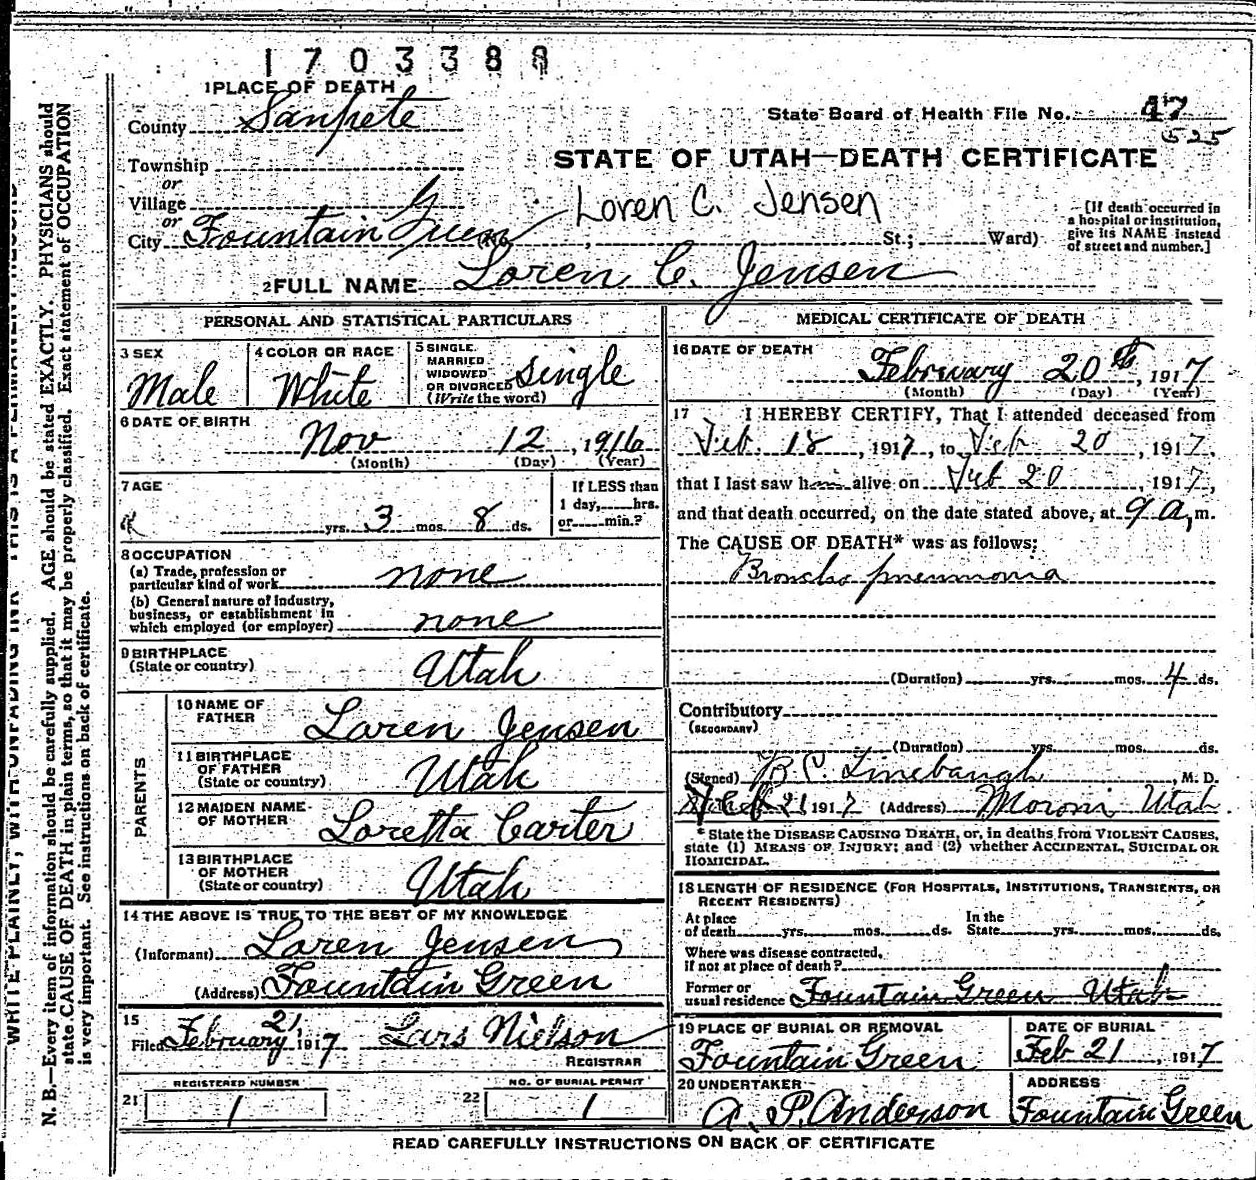 1703388
1 PLACE OF DEATH
County Sanpete
State Board of Health File No. 47
525
Township
STATE OF UTAH—DEATH CERTIFICATE
or
Village
Loren C. Jensen
or
City Fountain Green (No. , St.; Ward)
[If death occurred in
a hospital or institution,
give its NAME instead
of street and number.]
2 FULL NAME Loren C. Jensen
PERSONAL AND STATISTICAL PARTICULARS
3 SEX
Male
4 COLOR OR RACE
White
5 SINGLE.
MARRIED
WIDOWED
OR DIVORCED
(Write the word)
single
6 DATE OF BIRTH
Nov 12, 1916
(Month) (Day) (Year)
7 AGE
yrs. 3 mos. 8 ds.
If LESS than
1 day, hrs.
or min.?
8 OCCUPATION
(a) Trade, profession or
particular kind of work none
(b) General nature of industry,
business, or establishment in
which employed (or employer) none
9 BIRTHPLACE
(State or country) Utah
PARENTS
10 NAME OF
FATHER Loren Jensen
11 BIRTHPLACE
OF FATHER
(State or country) Utah
12 MAIDEN NAME
OF MOTHER Loretta Carter
13 BIRTHPLACE
OF MOTHER
(State or country) Utah
14 THE ABOVE IS TRUE TO THE BEST OF MY KNOWLEDGE
(Informant) Loren Jensen
(Address) Fountain Green
15
Filed February 21, 1917 Lars Nielson
REGISTRAR
REGISTERED NUMBER
21 1
NO. OF BURIAL PERMIT
22 1
MEDICAL CERTIFICATE OF DEATH
16 DATE OF DEATH
February 20th, 1917
(Month) (Day) (Year)
17 I HEREBY CERTIFY, That I attended deceased from
Feb. 18, 1917, to Feb 20, 1917,
that I last saw him alive on Feb 20, 1917,
and that death occurred, on the date stated above, at 9 a, m.
The CAUSE OF DEATH* was as follows:
Broncho pneumonia
(Duration) yrs. mos. 4 ds.
Contributory
(SECONDARY)
(Duration) yrs. mos. ds.
(Signed) B. C. Linebaugh, M. D.
Feb 21 1917 (Address) Moroni Utah
* State the DISEASE CAUSING DEATH, or, in deaths from VIOLENT CAUSES,
state (1) MEANS OF INJURY; and (2) whether ACCIDENTAL, SUICIDAL OR
HOMICIDAL.
18 LENGTH OF RESIDENCE (FOR HOSPITALS, INSTITUTIONS, TRANSIENTS, OR
RECENT RESIDENTS)
At place
of death yrs. mos. ds.
In the
State yrs. mos. ds.
Where was disease contracted,
if not at place of death?
Former or
usual residence Fountain Green Utah
19 PLACE OF BURIAL OR REMOVAL
Fountain Green
DATE OF BURIAL
Feb 21, 1917
20 UNDERTAKER
A. P. Anderson
ADDRESS
Fountain Green
READ CAREFULLY INSTRUCTIONS ON BACK OF CERTIFICATE
N. B.—Every item of information should be carefully supplied. AGE should be stated EXACTLY. PHYSICIANS should
state CAUSE OF DEATH in plain terms, so that it may be properly classified. Exact statement of OCCUPATION
is very important. See instructions on back of certificate.